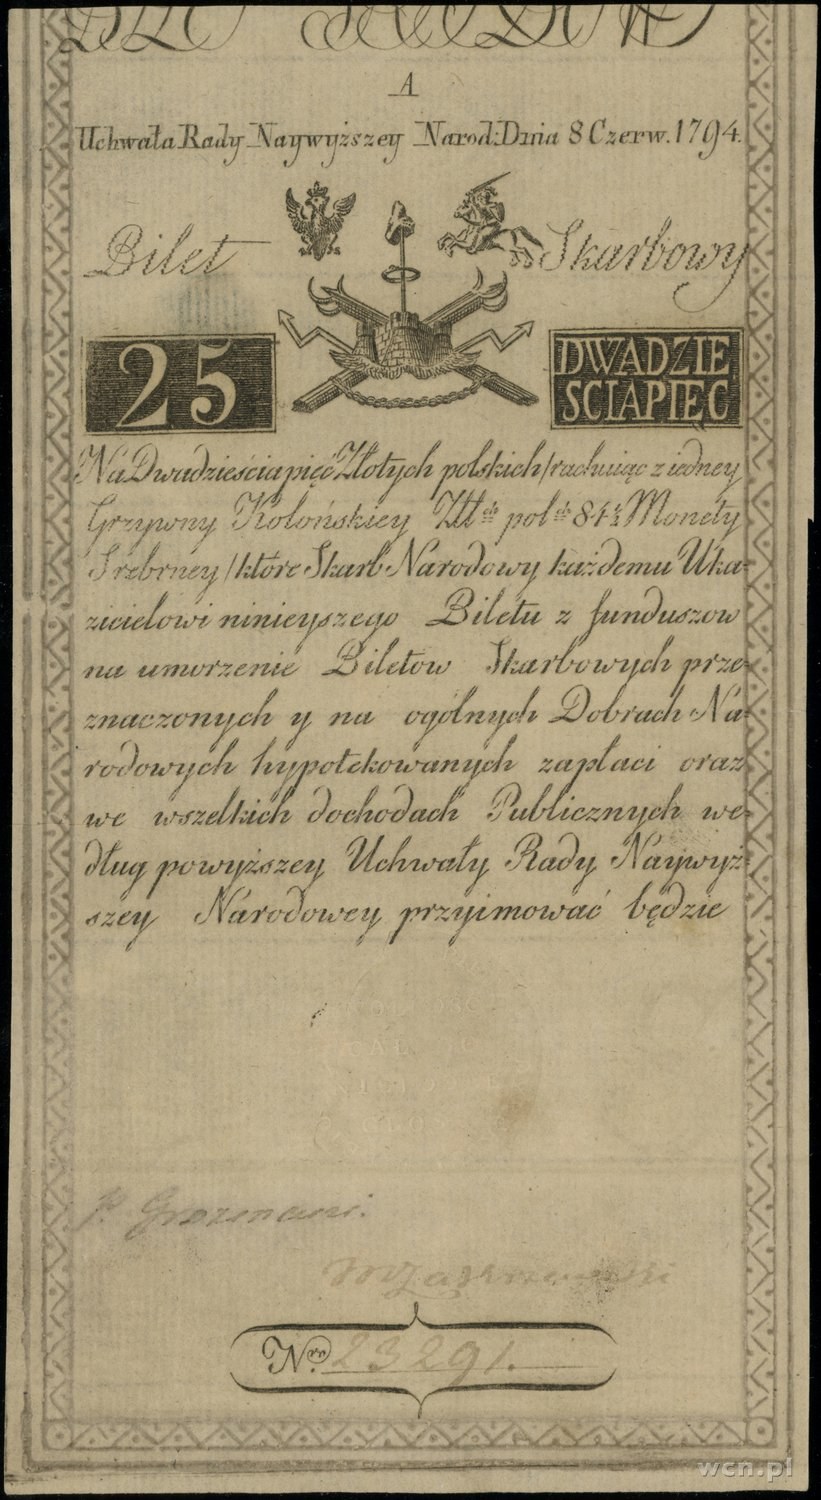 A
Uchwała Rady Naywyższey Narod: Dnia 8 Czerw. 1794.
Bilet Skarbowy
25
DWADZIE
SCIAPIĘC
Na Dwadzieścia pięć Złotych polskich / rachuiąc z iedney
Grzywny Kolońskiey Zlt ch pol ch 84½ Monety
Srebrney / które Skarb Narodowy każdemu Uka-
zicielowi ninieyszego Biletu z funduszow
na umorzenie Biletow Skarbowych prze-
znaczonych y na ogólnych Dobrach Na-
rodowych hypotekowanych zapłaci oraz
we wszelkich dochodach Publicznych we-
dług powyższey Uchwały Rady Naywyż-
szey Narodowey przyimować będzie
Nro 23291.
wcn.pl